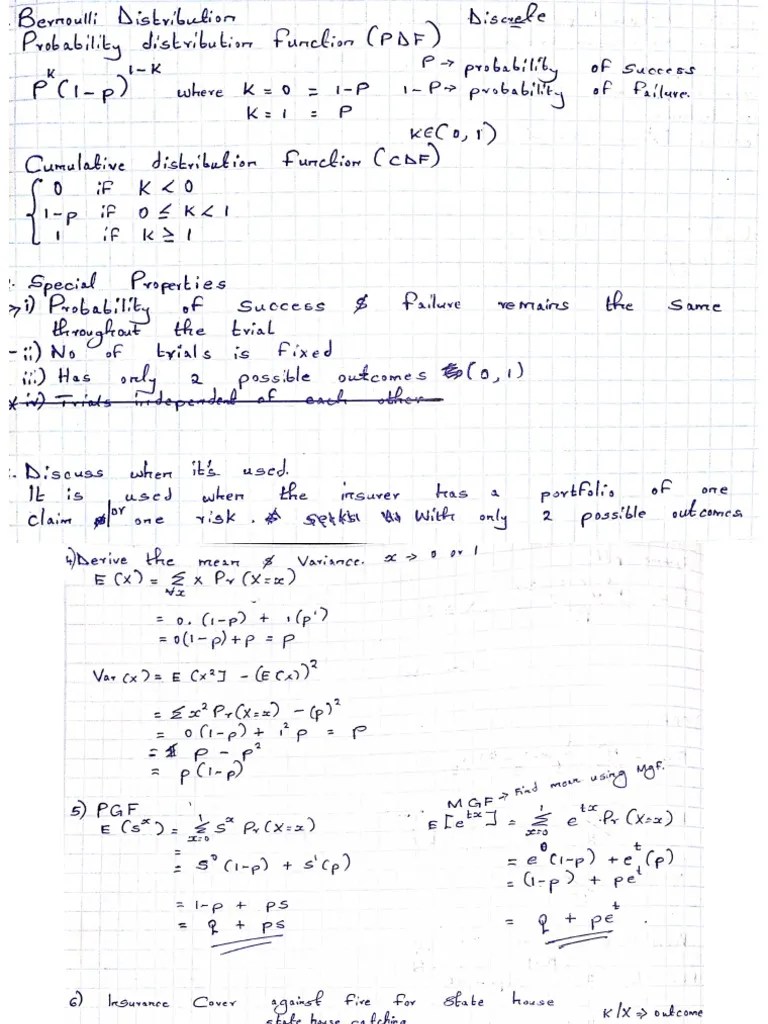 Bernoulli Distribution Discrete
Probability distribution function (PDF)
P^k (1-p)^{1-k} where K = 0 = 1-P
K = 1 = P
P → probability of success
1-P → probability of failure.
K∈(0, 1)
Cumulative distribution function (CDF)
{ 0 if K < 0
1-p if 0 ≤ K < 1
1 if K ≥ 1
Special Properties
i) Probability of success & failure remains the same
throughout the trial
ii) No of trials is fixed
iii) Has only 2 possible outcomes (0, 1)
iv) Trials independent of each other
Discuss when it's used.
It is used when the insurer has a portfolio of one
claim or one risk. With only 2 possible outcomes
4) Derive the mean & Variance. x → 0 or 1
E(X) = Σ_{∀x} x Pr(X=x)
= 0.(1-p) + 1(p')
= 0(1-p)+p = p
Var(x) = E[x²] - (E(x))²
= Σx² Pr(X=x) - (p)²
= 0(1-p) + 1² p = p
= p - p²
= p(1-p)
5) PGF
E(S^x) = Σ_{x=0}^{1} S^x Pr(X=x)
=
= S⁰(1-p) + S'(p)
= 1-p + ps
= q + ps
MGF → Find mean using Mgf.
E[e^{tx}] = Σ_{x=0}^{1} e^{tx}.Pr(X=x)
= e⁰(1-p) + e^t(p)
= (1-p) + pe^t
= q + pe^t.
6) Insurance Cover against fire for state house
state house catching
K/X ⇒ outcome